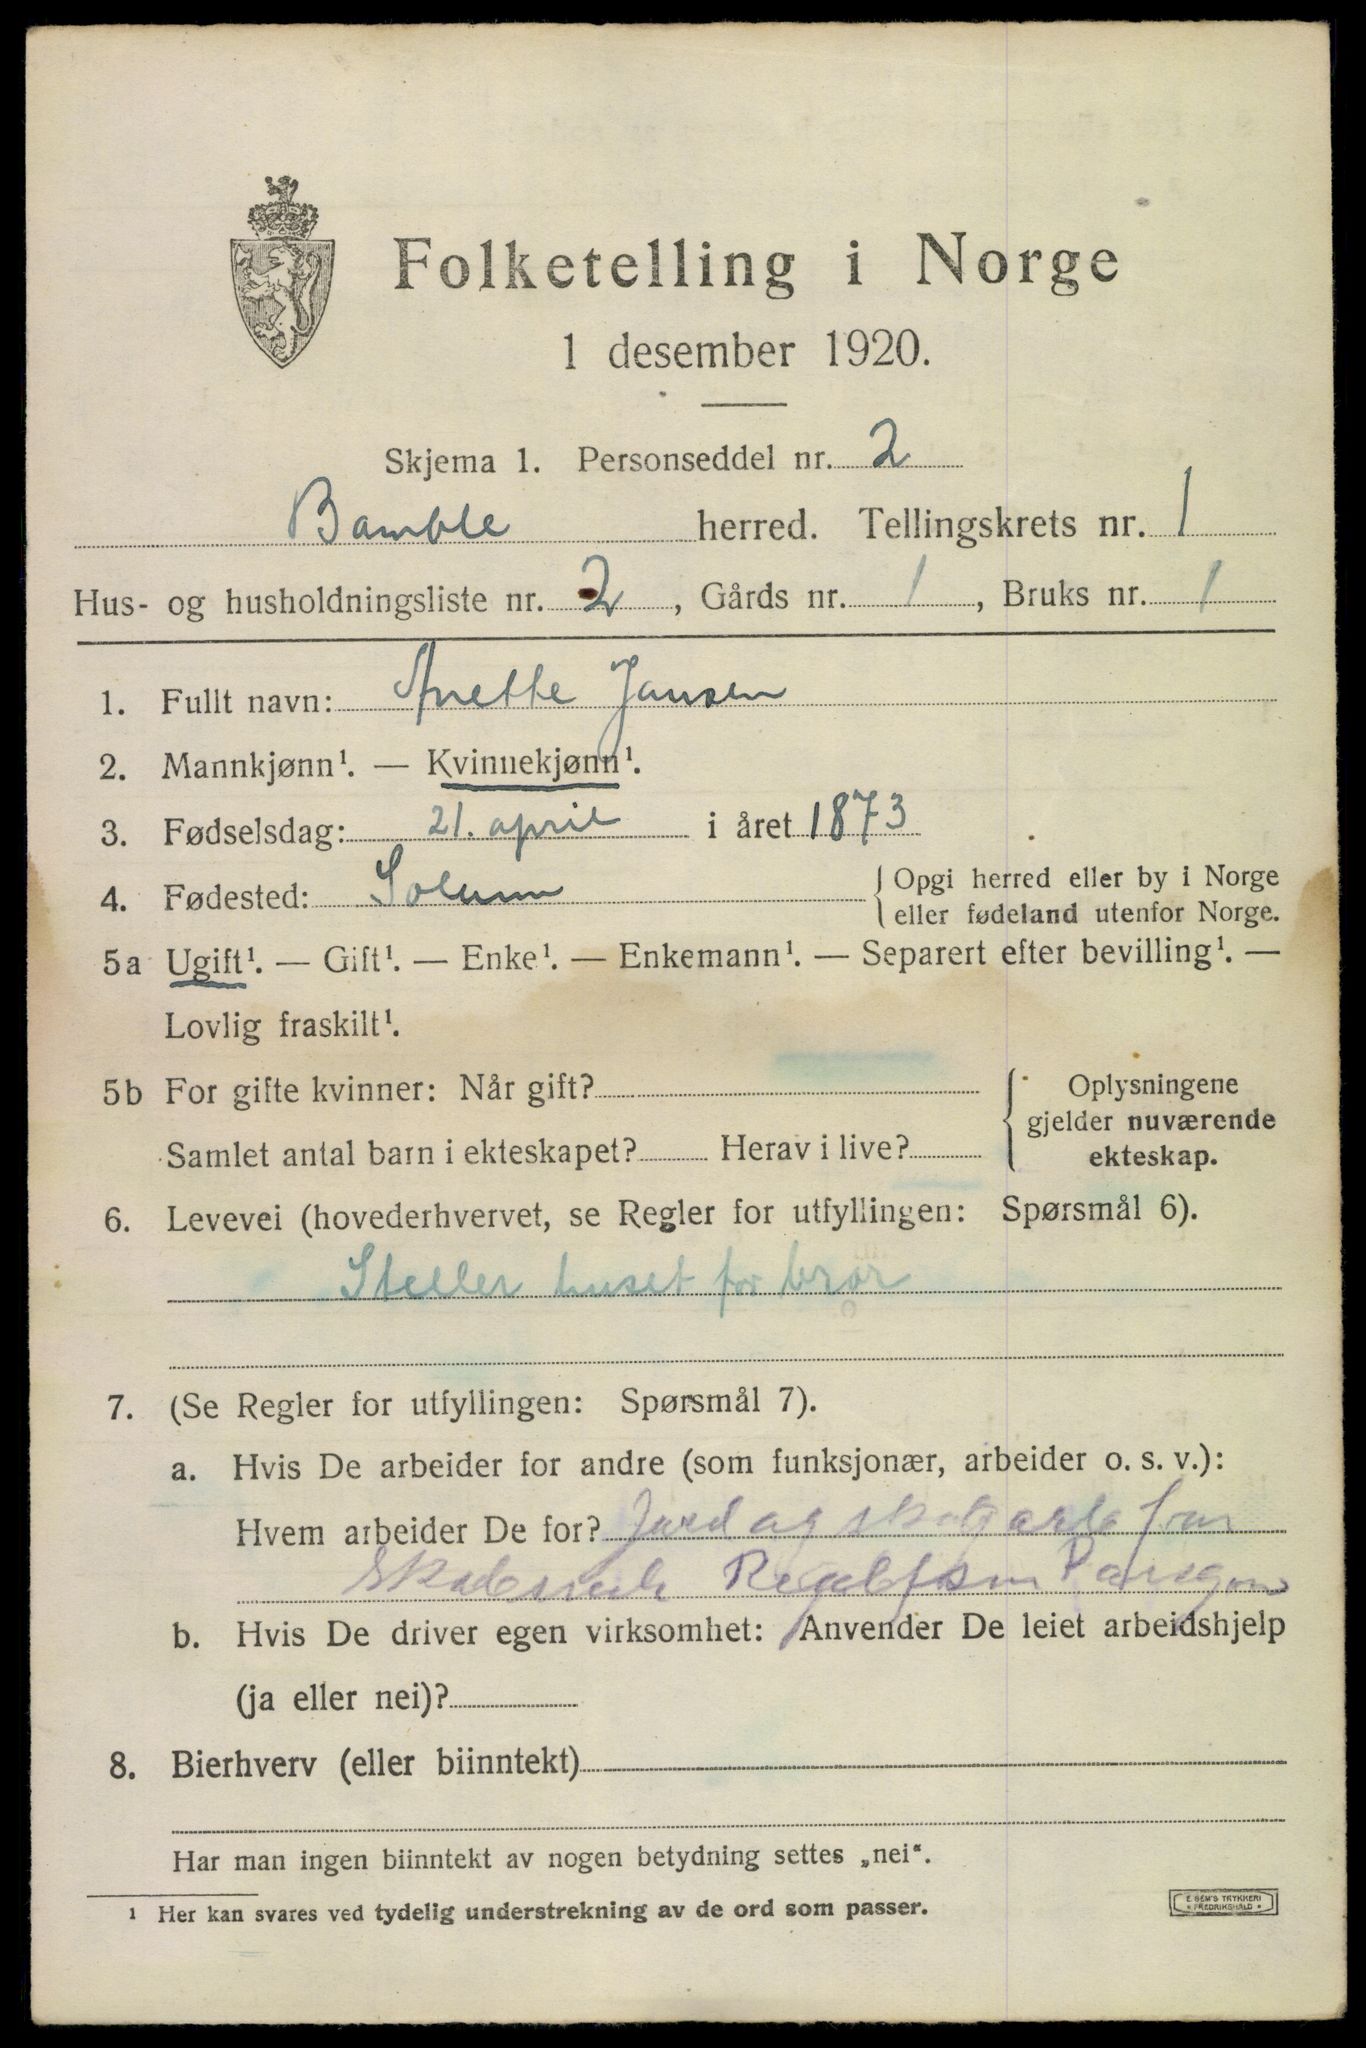 Folketelling i Norge
1 desember 1920.
Skjema 1. Personseddel nr. 2
Bamble herred. Tellingskrets nr. 1
Hus- og husholdningsliste nr. 2, Gårds nr. 1, Bruks nr. 1
1. Fullt navn: Anette Jansen
2. Mannkjønn¹. — Kvinnekjønn¹.
3. Fødselsdag: 21. april i året 1873
4. Fødested: Solum { Opgi herred eller by i Norge
eller fødeland utenfor Norge.
5a Ugift¹. — Gift¹. — Enke¹. — Enkemann¹. — Separert efter bevilling¹. —
Lovlig fraskilt¹.
5b For gifte kvinner: Når gift? { Oplysningene
gjelder nuværende
Samlet antal barn i ekteskapet? Herav i live? ekteskap.
6. Levevei (hovederhvervet, se Regler for utfyllingen: Spørsmål 6).
Steller huset for bror
7. (Se Regler for utfyllingen: Spørsmål 7).
a. Hvis De arbeider for andre (som funksjonær, arbeider o. s. v.):
Hvem arbeider De for? Jord og skogarb for
Porsgrun
b. Hvis De driver egen virksomhet: Anvender De leiet arbeidshjelp
(ja eller nei)?
8. Bierhverv (eller biinntekt)
Har man ingen biinntekt av nogen betydning settes „nei“.
¹ Her kan svares ved tydelig understrekning av de ord som passer.
E SEM'S TRYKKERI
* FREDRIKSHALD *